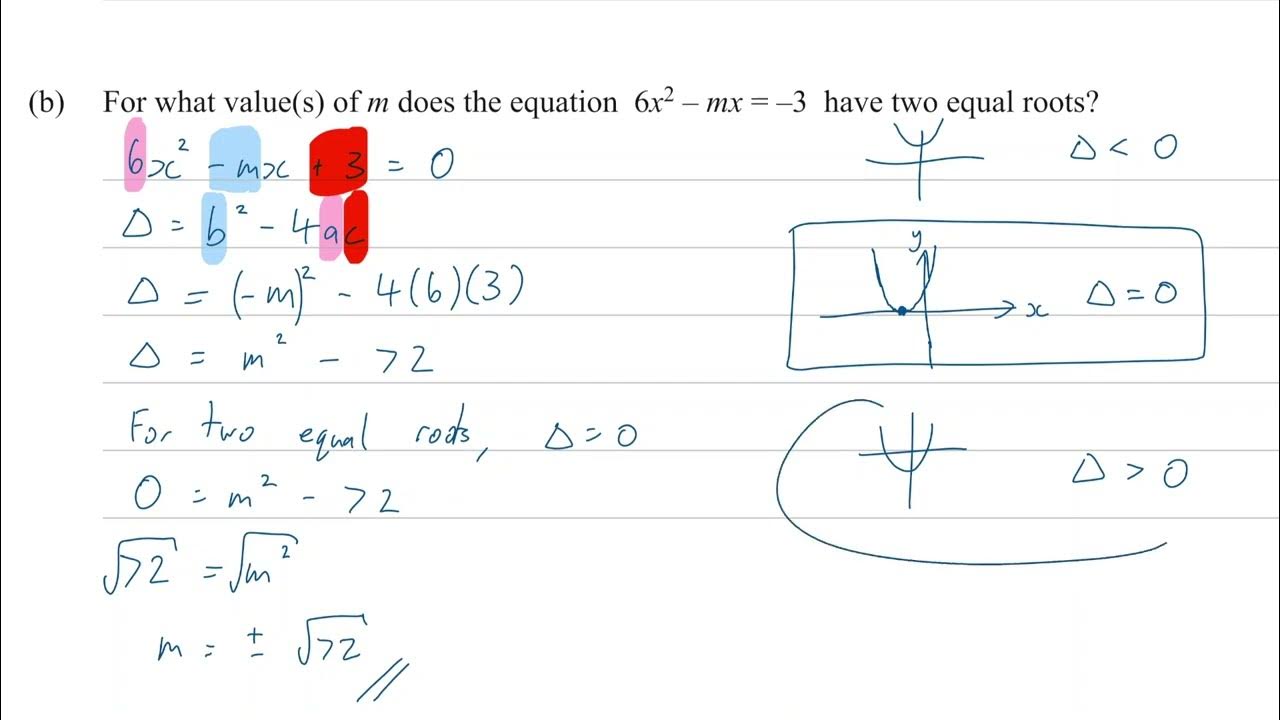 (b) For what value(s) of m does the equation 6x² – mx = –3 have two equal roots?
6x² - mx + 3 = 0
Δ < 0
Δ = b² - 4ac
y
Δ = (-m)² - 4(6)(3)
x
Δ = 0
Δ = m² - 72
For two equal roots, Δ = 0
Δ > 0
0 = m² - 72
√72 = √m²
m = ± √72